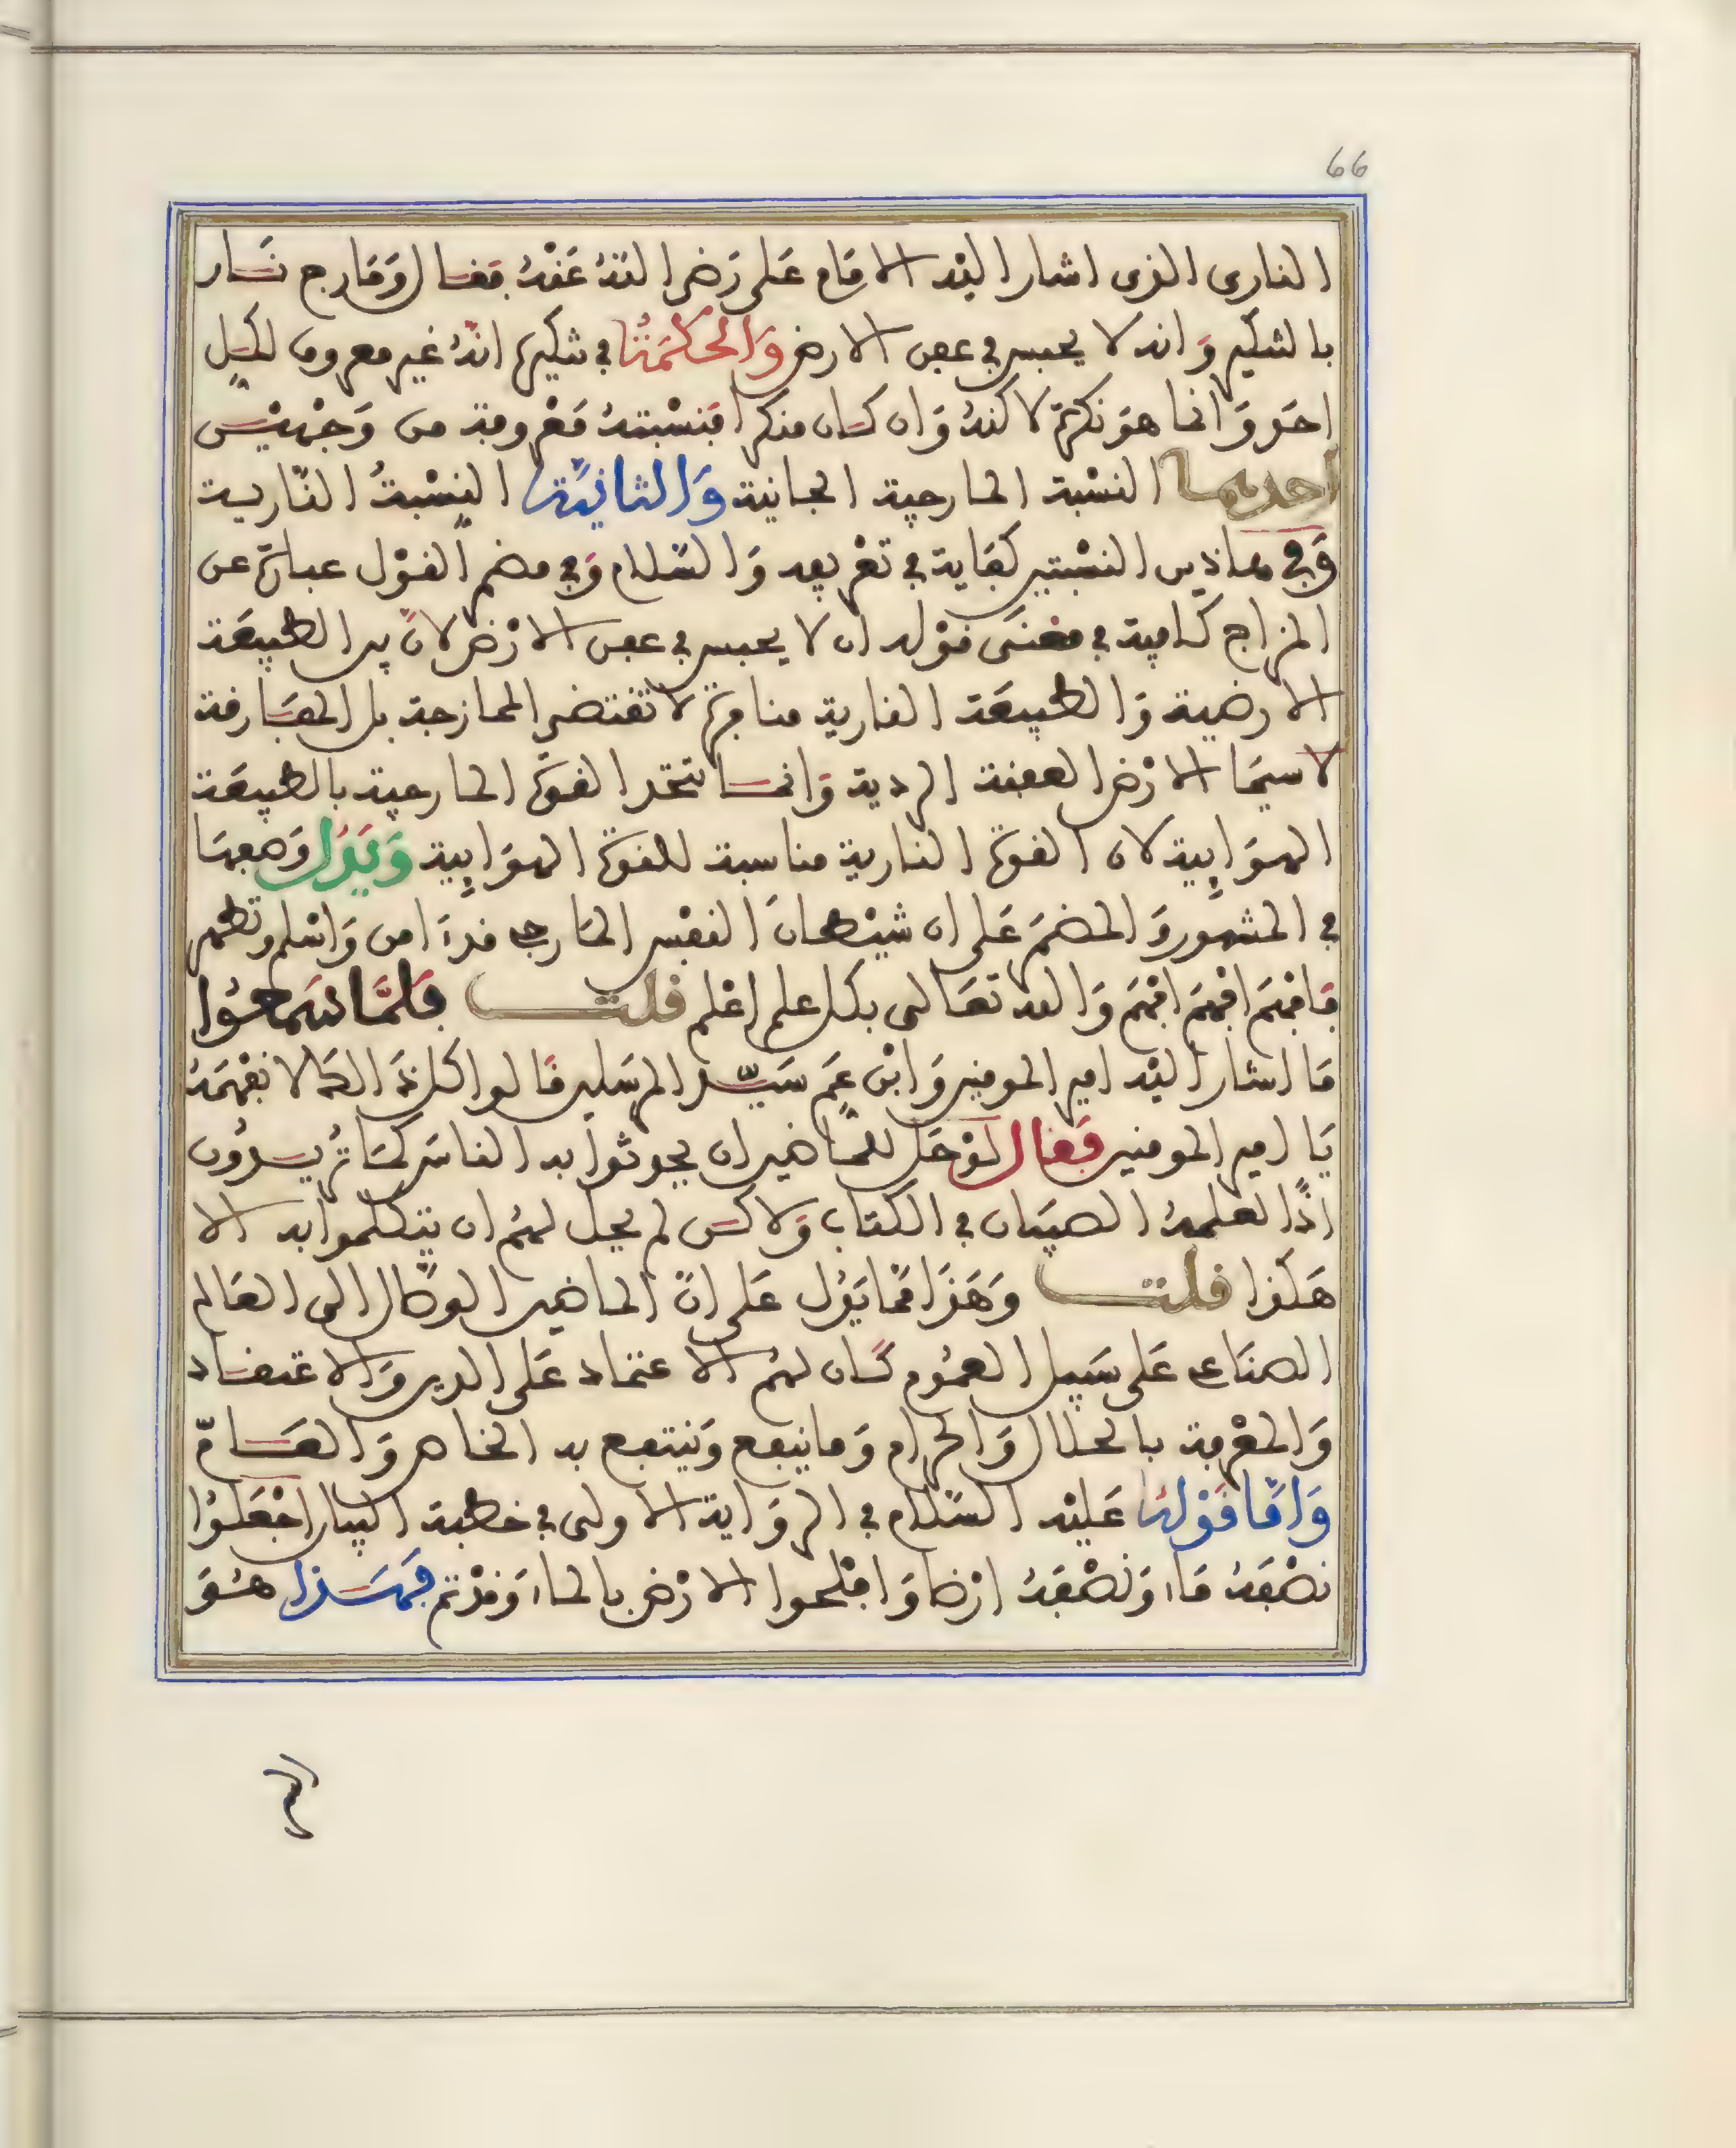 66
النارى الذى اشار اليْه الامَام عَلى رَضى اللهُ عَنْهُ فقال وَمَارج نَار
بالتنكير وَانه لا يحبس في عفن الارض وَالحكمَةُ في تنكيره انهُ غير معروف لكل
احَد وَانما هوَ نكرة لاكنهُ وَان كان منكرا فنسْبتهُ مَعْروفة من وَجْهيْن
احديهما النسْبة المارجية الجانية وَالثانيَة النسْبةُ النّارية
وَفي هاذين النسْبتين كفَاية في تعْريفه وَالسّلام وَفي هضم القوْل عبارة عن
المزاج كافية في مَعنَى قوْله ان لا يحبس في عفن الارْض لانّ بين الطبيعَة
الارضية وَالطبيعَة النارية منافرة لا تقتضى الممازجة بل المفَارقة
لا سيمَا الارْض العفنة الردية وَانما تتخذ القوّة المارجية بالطبيعَة
الهوَايية لان القوة النارية مناسبة للقوة الهوَايية وَيَدُل وَضعهَا
في المشهور وَالهضم عَلى ان شيْطانَ النفْس المارج قدَ امن وَاسْلم وتطهر
فافهَم افهَم افهَم وَالله تعَالى بكل علم اعْلم قلت فَلمَّا سَمعُوا
مَا اشار اليْه امير المومنين وَابْن عَم سَيّد المرسَلين قَالوا كل هَذَا لا نفْهَمَهُ
يَا امير المومنين فَقَال لوْ حَل للمَاضين ان يحدثوا به الناس كمَا تريدُون
اذًا لعلمهُ الصبيَان في الكتاب وَلاكن لم يحل لهُم ان يتكلموا به الا
هَكذا قلت وَهَذَا ممّا يَدُل عَلى انّ الماضين الوصَال الى العَالم
الصنَاعى عَلى سَبيل العمُوم كَان لهُم الاعتماد عَلى الدين وَالاعتقاد
وَالمعْرفة بالحلال وَالحرَام وَما ينفع وَينتفع به الخاص وَالعَامّ
وَامّا قوْلهُ عَليْه السّلام في الروَاية الاولى في خطبة البيان اجْعَلوُا
نصْفَهُ مَاء وَنصْفَهُ ارْضا وَافلحوا الارْض بالماء وَقدْ تم فهَذا هُوَ